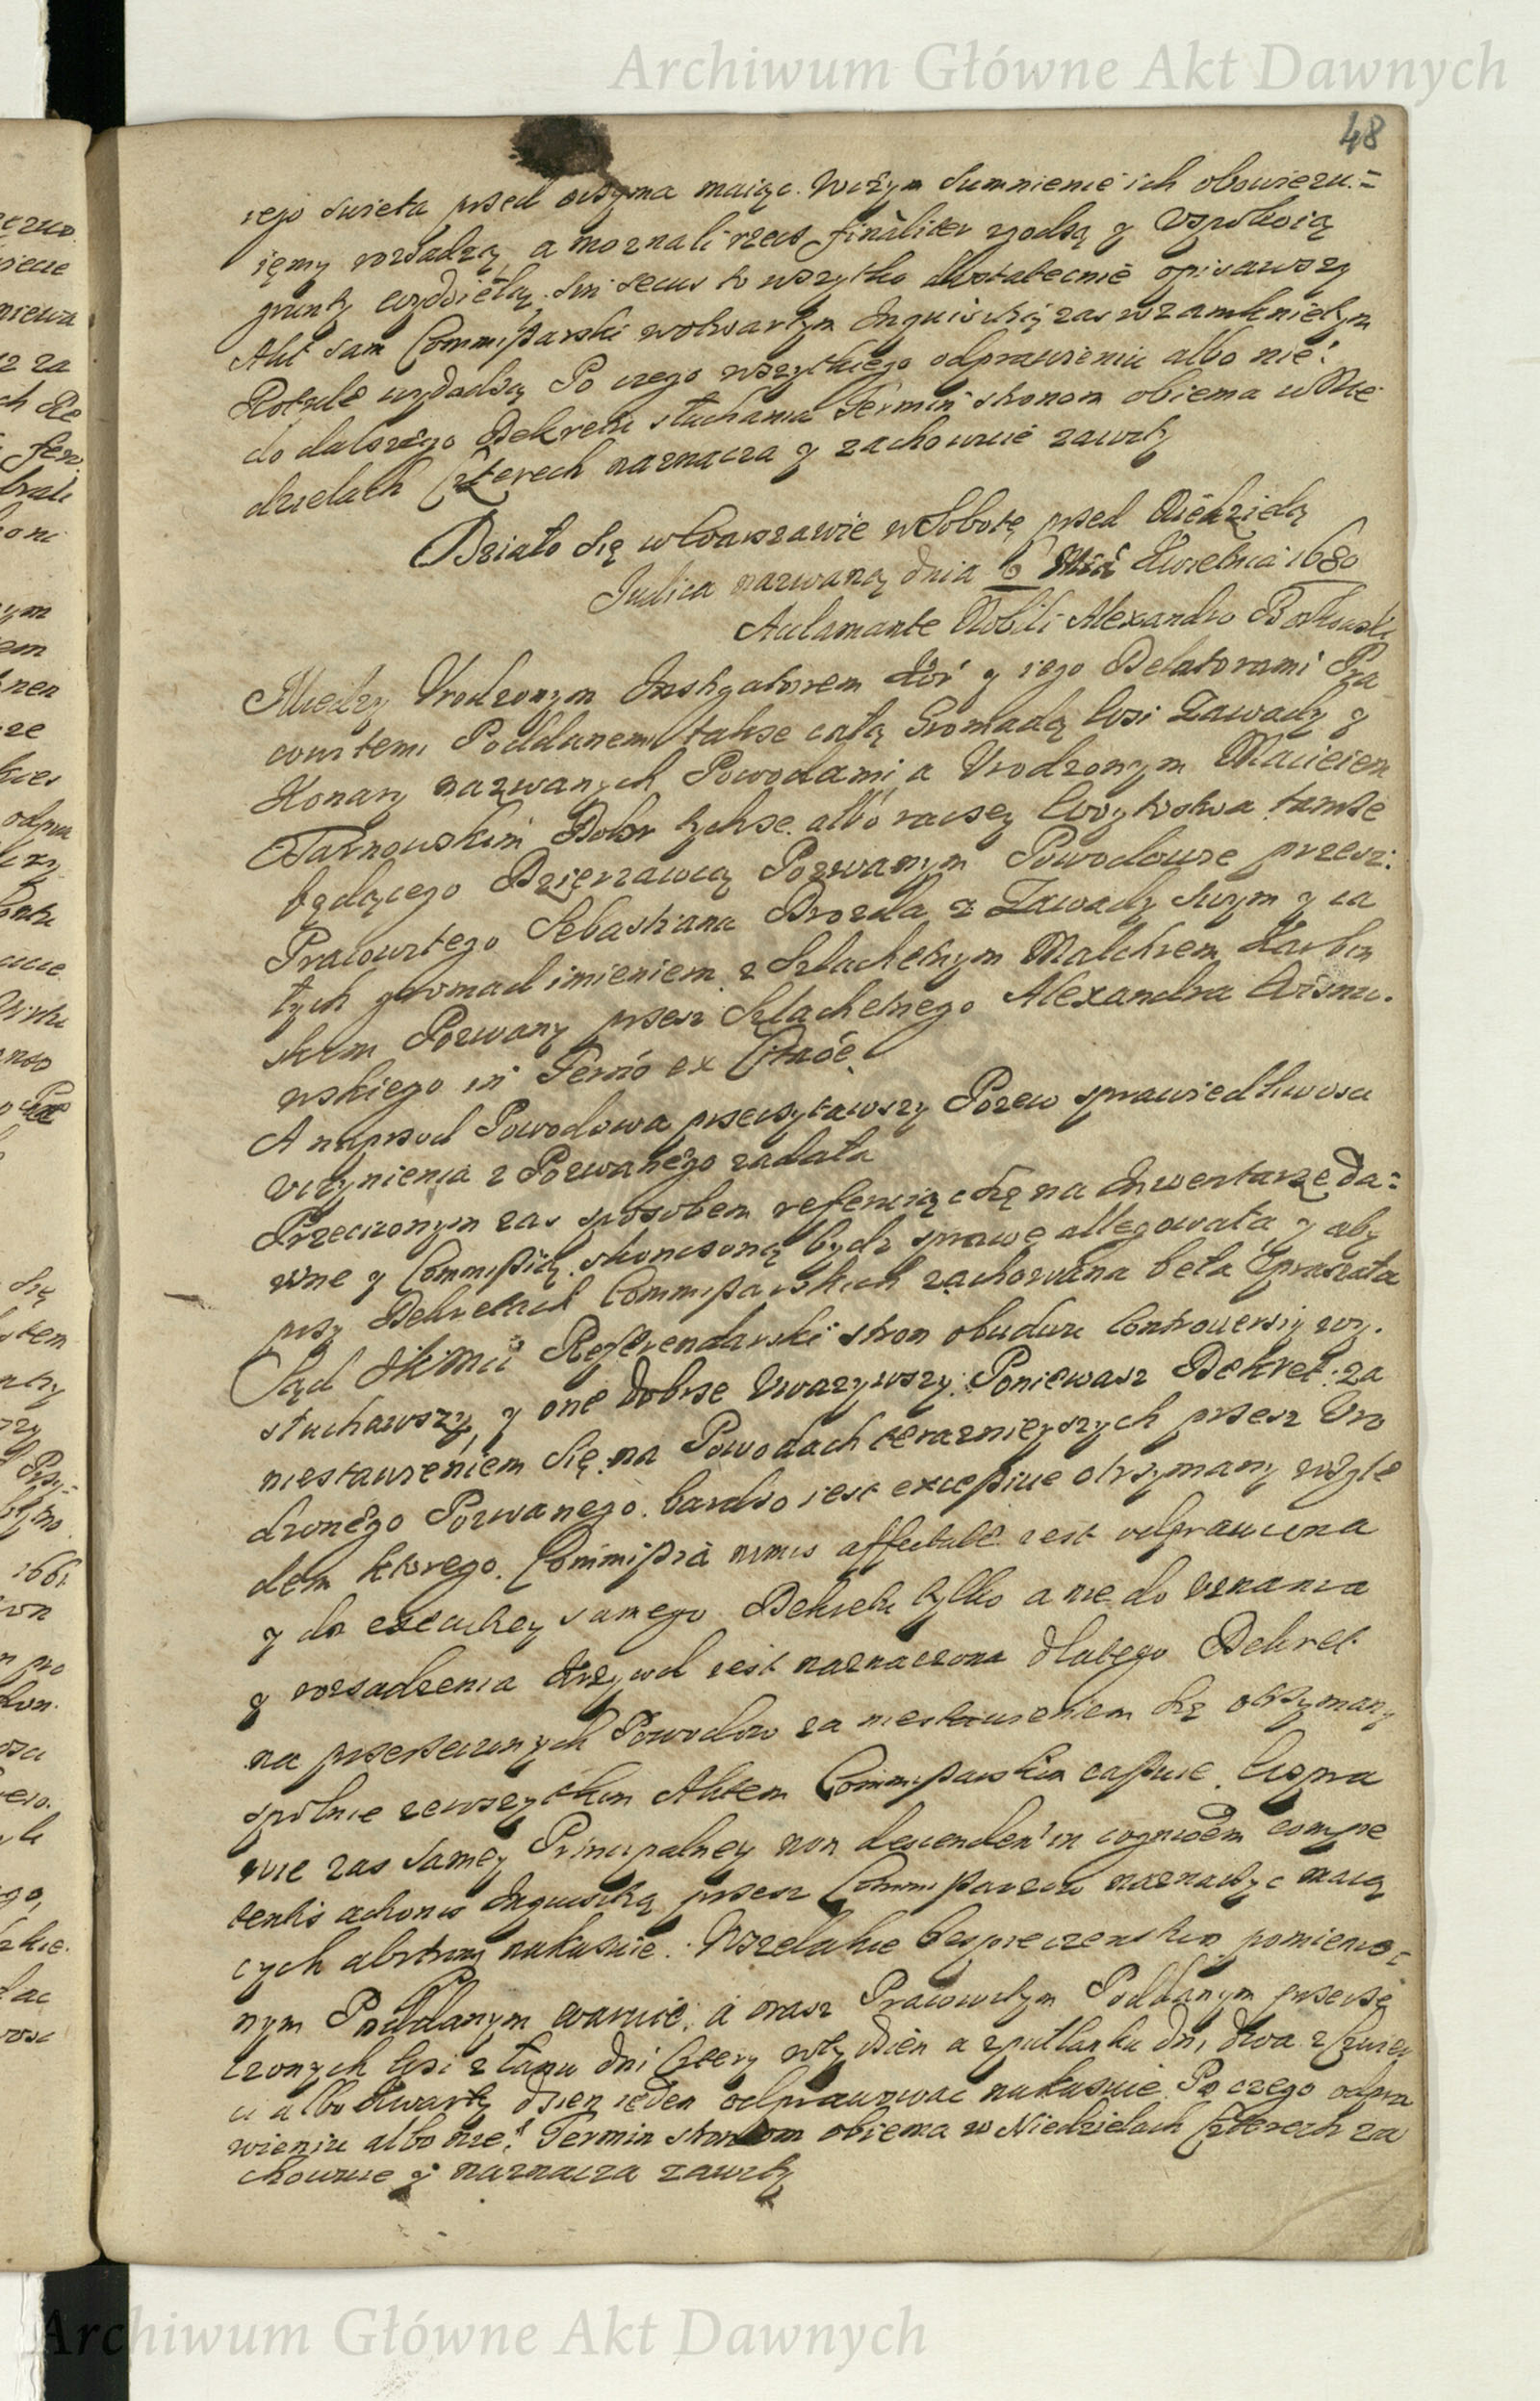 Archiwum Główne Akt Dawnych
48
rego swieta przed oczyma maiąc. Wczym Sumnienie ich obowiezu=
iemy rozsadzą, a moznali rzecz finaliter zgodzą y Uspokoią
grunty wydzielą. Sin secus to wszytko dostatecznie opisawszy
Akt sam Commissarski wotwartym Inquisitią zas w zamknietym
Rotule wydadzą Po czego wszytkiego odprawieniu albo nie:
do dalszego Dekretu słuchania Termin stronom obiema w Nie
dzielach Czterech naznacza y zachowuie zawity
Działo Się w Warszawie w Sobotę przed Niedzielą
Iudica nazwaną dnia 6 Kwietnia 1680
Aclamante Nobili Alexandro Borkowski
Miedzy Urodzonym Instygatorem y iego Delatorami Pra
cowitemi Poddanemi także całą Gromadą Wsi Zawady y
Konary nazwanych Powodami, a Urodzonym Macieiem
Tarnowskim Dobr tychże. albo raczey Woytostwa tamże
będącego Dzierzawcą Pozwanym Powodowie przesz:
Pracowitego Sebastiana Drozda z Zawady Swym y ca
łych gromad imieniem z Szlachetnym Malchrem
skim Pozwany przesz Szlachetnego Alexandra Wisniew.
wskiego in Termo ex Cittnoe.
A naprzod Powodowa przeczytawszy Pozew sprawiedliwosci
uczynienia z Pozwanego żadała
Przeciwnym zas sposobem referuiąc się na Inwentarze Da=
wne y Commissią skonczoną bydz sprawę allegowała y aby
przy Dekretach Commissarskich zachowana beła Upraszała
Sąd IKMci Referendarski stron obudwu Controuersiy wy.
słuchawszy, y one dobrze Uwazywszy. Poniewasz Dekret za
niestawieniem Się na Powodach terazniejszych przesz Uro
dzonego Pozwanego. bardzo iest excessiue otrzymany wzglę
dem ktorego. Commissia nimis affectate iest odprawiona
y do executiey samego Dekretu tylko a nie do Uznania
y rozsadzenia krzywd iest naznaczona dlatego Dekret
na przerzeczonych Powodow za niestawieniem Się otrzymany
spolnie zewszytkim Aktem Commissarskim cassuie. Wspra
wie zas samey Principalney non decenden in cognoem compe
tentis actionis Inquisitią przesz Commissarzow naznaczyc maią
cych nakazuie. Wszelakie bespieczenstwo pomienio=
nym Poddanym waruie, a oraz Pracowitym Poddanym przerze
czonych Wsi z łanu dni Cztery w tydzien a zpułłanku dni dwa z
ci albo Kwarty dzien ieden odprawiowac nakazuie. Po czego odpra
wieniu albo nie: Termin stronom obiema w Niedzielach Czterech za
chowuie y naznacza zawity
Archiwum Główne Akt Dawnych